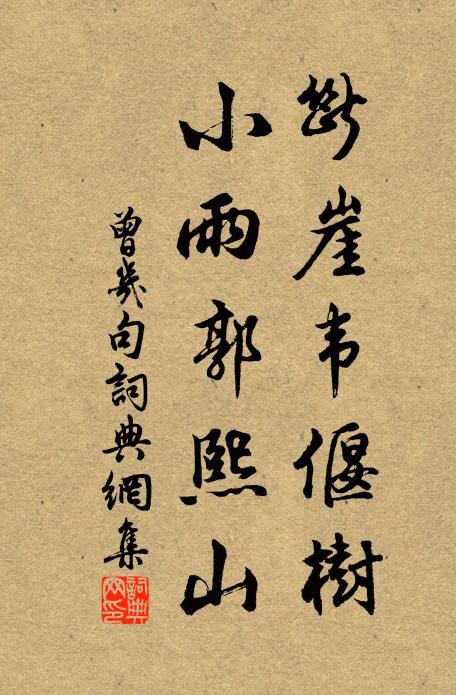 斷崖韦偃樹
小雨郭熙山
曾幾句詞典網集
詞典網印